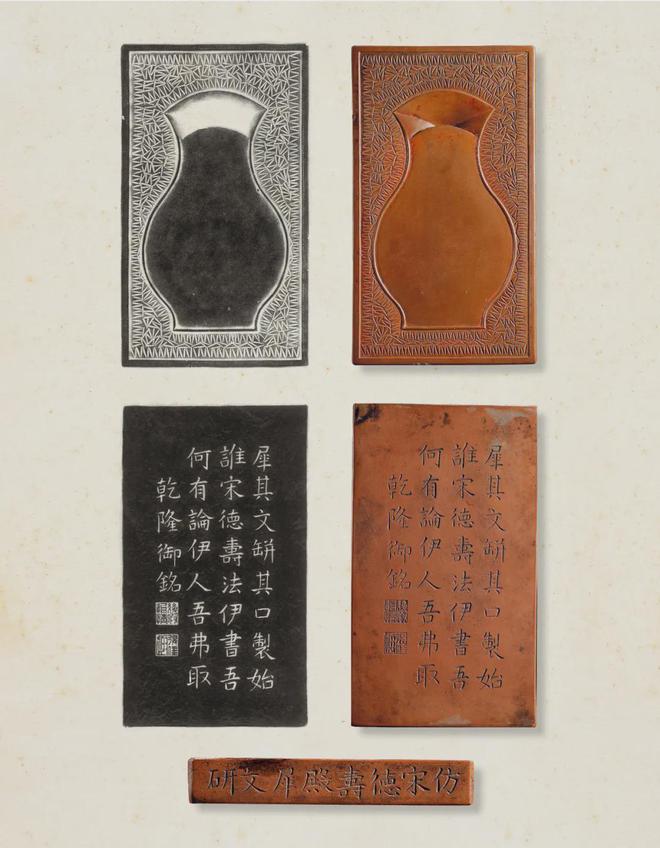 犀其文缾其口製始
誰宋德壽法伊書吾
何有論伊人吾弗取
乾隆御銘
犀其文缾其口製始
誰宋德壽法伊書吾
何有論伊人吾弗取
乾隆御銘
仿宋德壽殿犀文研